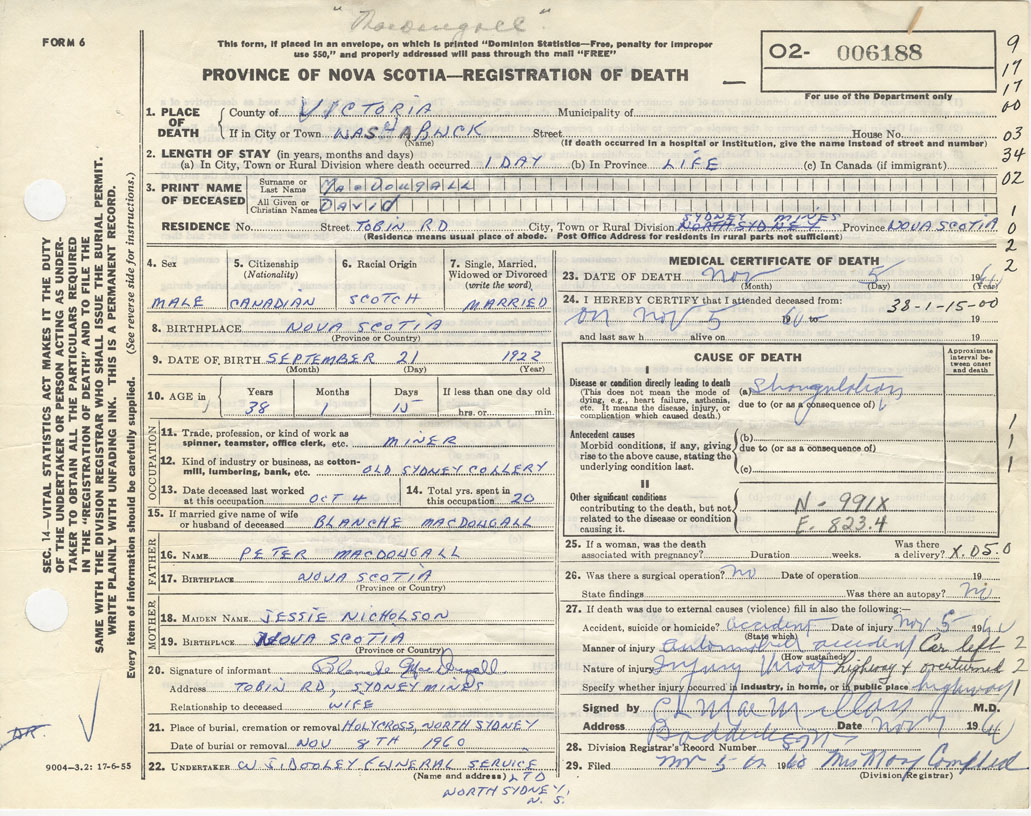 "MacDougall"
FORM 6
This form, if placed in an envelope, on which is printed "Dominion Statistics—Free, penalty for improper
use $50," and properly addressed will pass through the mail "FREE"
PROVINCE OF NOVA SCOTIA—REGISTRATION OF DEATH
O2- 006188
For use of the Department only
9
17
17
00
03
34
02
1
0
2
2
1. PLACE OF DEATH
County of VICTORIA Municipality of
If in City or Town WASHABUCK Street House No.
(Name) (If death occurred in a hospital or institution, give the name instead of street and number)
2. LENGTH OF STAY (in years, months and days)
(a) In City, Town or Rural Division where death occurred 1 DAY (b) In Province LIFE (c) In Canada (if immigrant)
3. PRINT NAME OF DECEASED
Surname or Last Name MacDOUGALL
All Given or Christian Names DAVID
SYDNEY MINES
RESIDENCE No. Street TOBIN RD City, Town or Rural Division NORTH SYDNEY Province NOVA SCOTIA
(Residence means usual place of abode. Post Office Address for residents in rural parts not sufficient)
4. Sex MALE
5. Citizenship (Nationality) CANADIAN
6. Racial Origin SCOTCH
7. Single, Married, Widowed or Divorced (write the word) MARRIED
8. BIRTHPLACE NOVA SCOTIA
(Province or Country)
9. DATE OF BIRTH SEPTEMBER 21 1922
(Month) (Day) (Year)
10. AGE in Years 38 Months 1 Days 15 If less than one day old hrs. or min.
OCCUPATION
11. Trade, profession, or kind of work as spinner, teamster, office clerk, etc. MINER
12. Kind of industry or business, as cotton-mill, lumbering, bank, etc. OLD SYDNEY COLLERY
13. Date deceased last worked at this occupation OCT 4
14. Total yrs. spent in this occupation 20
15. If married give name of wife or husband of deceased BLANCHE MACDOUGALL
FATHER
16. NAME PETER MACDOUGALL
17. BIRTHPLACE NOVA SCOTIA
(Province or Country)
MOTHER
18. MAIDEN NAME JESSIE NICHOLSON
19. BIRTHPLACE NOVA SCOTIA
(Province or Country)
20. Signature of informant Blanche MacDougall
Address TOBIN RD, SYDNEY MINES
Relationship to deceased WIFE
21. Place of burial, cremation or removal HOLYCROSS, NORTH SYDNEY
Date of burial or removal NOV 8TH 1960
22. UNDERTAKER W J. DOOLEY FUNERAL SERVICE
(Name and address) LTD
NORTH SYDNEY,
N. S.
MEDICAL CERTIFICATE OF DEATH
23. DATE OF DEATH Nov 5 1960
(Month) (Day) (Year)
24. I HEREBY CERTIFY that I attended deceased from: 38-1-15-00
on Nov 5 1960 to 19
and last saw h alive on 19
CAUSE OF DEATH
Approximate interval between onset and death
I
Disease or condition directly leading to death
(This does not mean the mode of dying, e.g., heart failure, asthenia, etc. It means the disease, injury, or complication which caused death.)
(a) Strangulation
due to (or as a consequence of)
Antecedent causes
Morbid conditions, if any, giving rise to the above cause, stating the underlying condition last.
(b)
due to (or as a consequence of)
(c)
1
1
1
II
Other significant conditions
contributing to the death, but not related to the disease or condition causing it.
N - 991X
E. 823.4
25. If a woman, was the death associated with pregnancy? Duration weeks. Was there a delivery? X. 05.0
26. Was there a surgical operation? no Date of operation 19
State findings Was there an autopsy? no
27. If death was due to external causes (violence) fill in also the following:—
Accident, suicide or homicide? accident Date of injury Nov 5 1960
(State which)
Manner of injury automobile accident Car left 2
(How sustained)
Nature of injury Injury throat highway & overturned 2
Specify whether injury occurred in industry, in home, or in public place highway 1
Signed by C L MacMillan M.D.
Address Baddeck Date Nov 7 1960
28. Division Registrar's Record Number
29. Filed Nov 1960
(Division Registrar)
SEC. 14—VITAL STATISTICS ACT MAKES IT THE DUTY
OF THE UNDERTAKER OR PERSON ACTING AS UNDER-
TAKER TO OBTAIN ALL THE PARTICULARS REQUIRED
IN THE "REGISTRATION OF DEATH" AND TO FILE THE
SAME WITH THE DIVISION REGISTRAR WHO SHALL ISSUE THE BURIAL PERMIT.
WRITE PLAINLY WITH UNFADING INK. THIS IS A PERMANENT RECORD.
Every item of information should be carefully supplied. (See reverse side for instructions.)
9004-3.2: 17-6-55